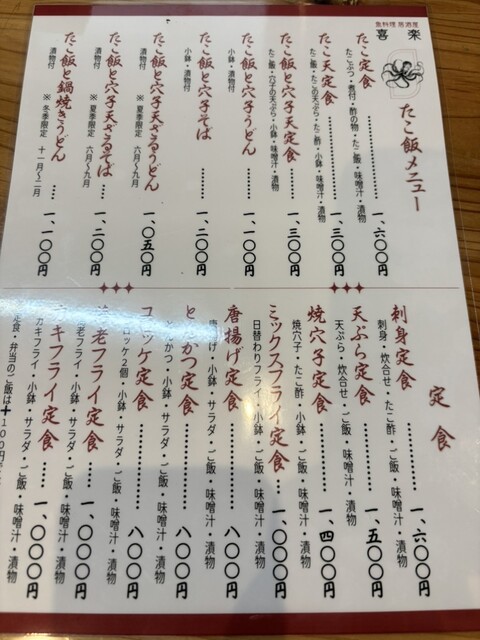 魚料理 居酒屋
喜楽
たこ飯メニュー
たこ定食 ………… 一、六〇〇円
たこぶつ・煮付・酢の物・たこ飯・味噌汁・漬物
たこ天定食 ………… 一、三〇〇円
たこ飯・たこの天ぷら・たこ酢・小鉢・味噌汁・漬物
たこ飯と穴子天定食 ……… 一、三〇〇円
たこ飯・穴子の天ぷら・小鉢・味噌汁・漬物
たこ飯と穴子うどん ……… 一、一〇〇円
小鉢・漬物付
たこ飯と穴子そば ………… 一、二〇〇円
小鉢・漬物付
たこ飯と穴子天ざるうどん … 一、〇五〇円
漬物付 ※夏季限定 六月～九月
たこ飯と穴子天ざるそば …… 一、二〇〇円
漬物付 ※夏季限定 六月～九月
たこ飯と鍋焼きうどん …… 一、一〇〇円
漬物付 ※冬季限定 十一月～二月
定食
刺身定食 ………… 一、六〇〇円
刺身・炊合せ・たこ酢・ご飯・味噌汁・漬物
天ぷら定食 ………… 一、五〇〇円
天ぷら・炊合せ・ご飯・味噌汁・漬物
焼穴子定食 ………… 一、四〇〇円
焼穴子・たこ酢・小鉢・ご飯・味噌汁・漬物
ミックスフライ定食 …… 一、〇〇〇円
日替わりフライ・小鉢・ご飯・味噌汁・漬物
唐揚げ定食 ………… 八〇〇円
唐揚げ・小鉢・サラダ・ご飯・味噌汁・漬物
とんかつ定食 ………… 八〇〇円
とんかつ・小鉢・サラダ・ご飯・味噌汁・漬物
コロッケ定食 ………… 八〇〇円
コロッケ2個・小鉢・サラダ・ご飯・味噌汁・漬物
老フライ定食 …… 一、〇〇〇円
老フライ・小鉢・サラダ・ご飯・味噌汁・漬物
カキフライ定食 …… 一、〇〇〇円
カキフライ・小鉢・サラダ・ご飯・味噌汁・漬物
定食・弁当のご飯は＋100円で